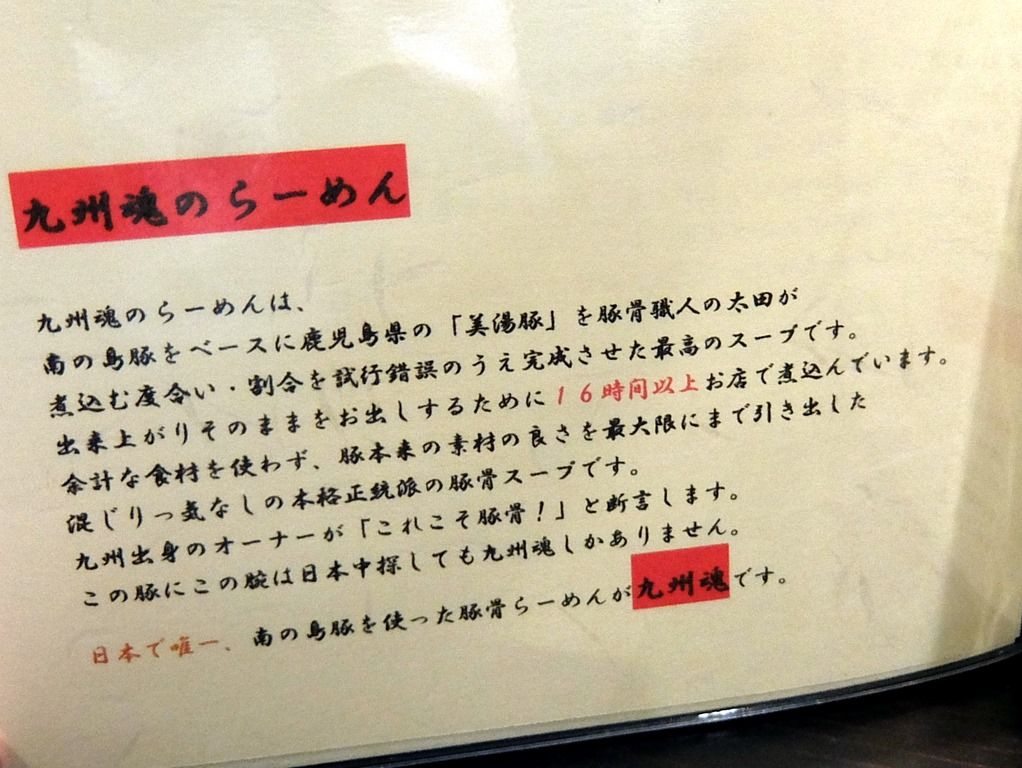 九州魂のらーめん
九州魂のらーめんは、
南の島豚をベースに鹿児島県の「美湯豚」を豚骨職人の太田が
煮込む度合い・割合を試行錯誤のうえ完成させた最高のスープです。
出来上がりそのままをお出しするために16時間以上お店で煮込んでいます。
余計な食材を使わず、豚本来の素材の良さを最大限にまで引き出した
混じりっ気なしの本格正統派の豚骨スープです。
九州出身のオーナーが「これこそ豚骨！」と断言します。
この豚にこの腕は日本中探しても九州魂しかありません。
日本で唯一、南の島豚を使った豚骨らーめんが九州魂です。